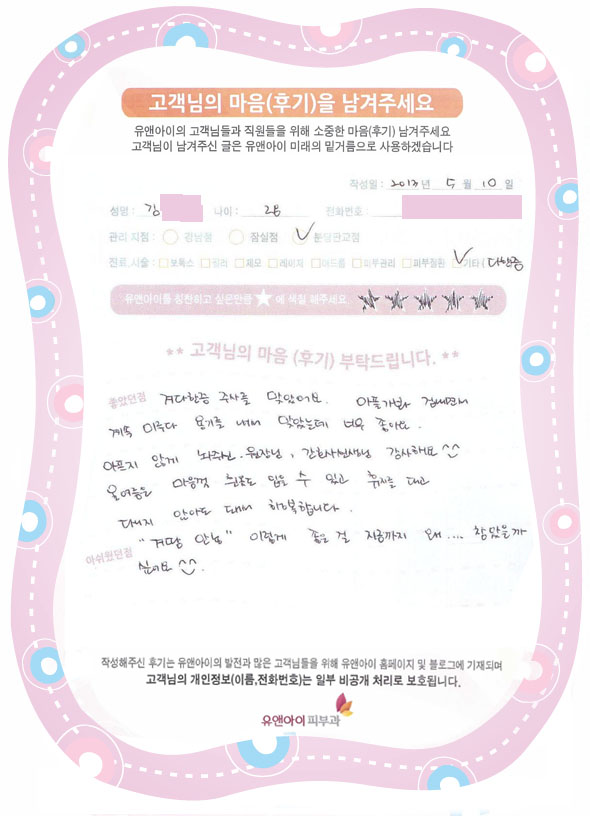 고객님의 마음(후기)을 남겨주세요
유앤아이의 고객님들과 직원들을 위해 소중한 마음(후기) 남겨주세요
고객님이 남겨주신 글은 유앤아이 미래의 밑거름으로 사용하겠습니다
작성일 : 2013 년 5 월 10 일
성명 : 김 나이 : 28 전화번호 :
관리 지점 : 강남점 잠실점 분당판교점
진료,시술 : 보톡스 필러 제모 레이저 여드름 미부관리 피부질환 기타 ( 다한증
유앤아이를 칭찬하고 싶은만큼 ★ 에 색칠 해주세요.
** 고객님의 마음 (후기) 부탁드립니다. **
좋았던점 겨다한증 주사를 맞았어요. 아플까봐 겁내면서
계속 미루다 용기를 내서 맞았는데 너무 좋아요.
아프지 않게 놔주신 원장님, 간호사선생님 감사해요 ^^
올여름은 마음껏 흰옷도 입을 수 있고 휴지를 대고
다니지 않아도 돼서 행복합니다.
"겨땀 안녕" 이렇게 좋은 걸 지금까지 왜.... 참았을까
아쉬웠던점
싶어요 ^^.
작성해주신 후기는 유앤아이의 발전과 많은 고객님들을 위해 유앤아이 홈페이지 및 블로그에 기재되며
고객님의 개인정보(이름,전화번호)는 일부 비공개 처리로 보호됩니다.
유앤아이피부과